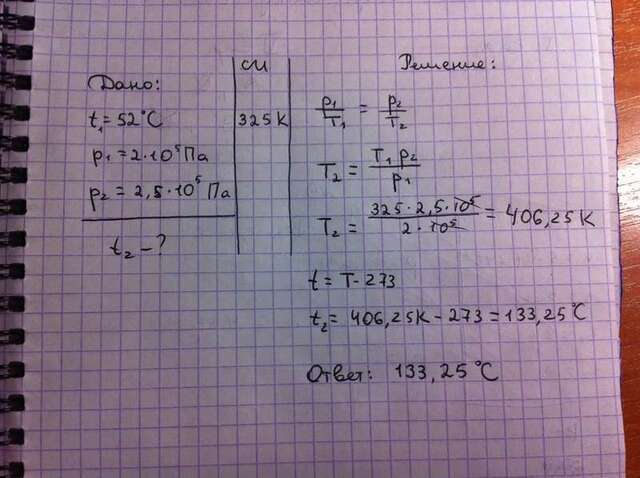 Дано:
СИ
t₁ = 52°C
325 K
p₁ = 2·10⁵ Па
p₂ = 2,5·10⁵ Па
t₂ – ?
Решение:
p₁/T₁ = p₂/T₂
T₂ = T₁ p₂/p₁
T₂ = 325·2,5·10⁵/2·10⁵ = 406,25 K
t = T - 273
t₂ = 406,25K - 273 = 133,25°C
Ответ: 133,25°C